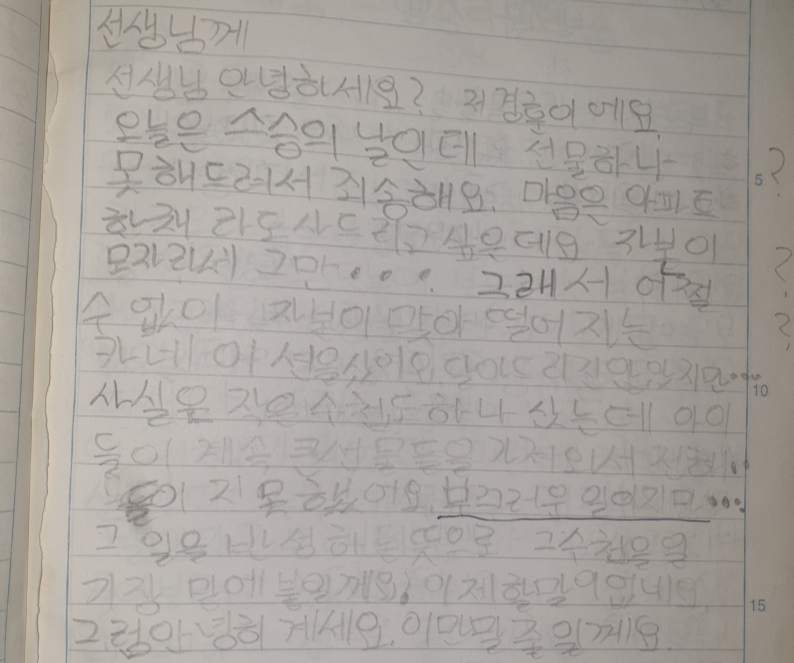 선생님께
선생님 안녕하세요? 저 경훈이에요.
오늘은 스승의 날인데 선물하나
못해드려서 죄송해요. 마음은 아파트
한채 라도 사드리고 싶은데요 자본이
모자라서 그만... 그래서 어쩔
수 없이 자본이 맞아 떨어지는
카네이션을샀어요. 달아드리진않았지만...
사실은 작은 수첩도 하나 샀는데 아이
들이 계속 큰선물들을 가져와서
지 못했어요. 부끄러운 일이지만...
그 일을 반성하는 뜻으로 그수첩을 일
기장 밑에 붙일게요. 이제할말이없네요.
그럼안녕히 계세요. 이만말줄일께요.
5
10
15
?
?
?